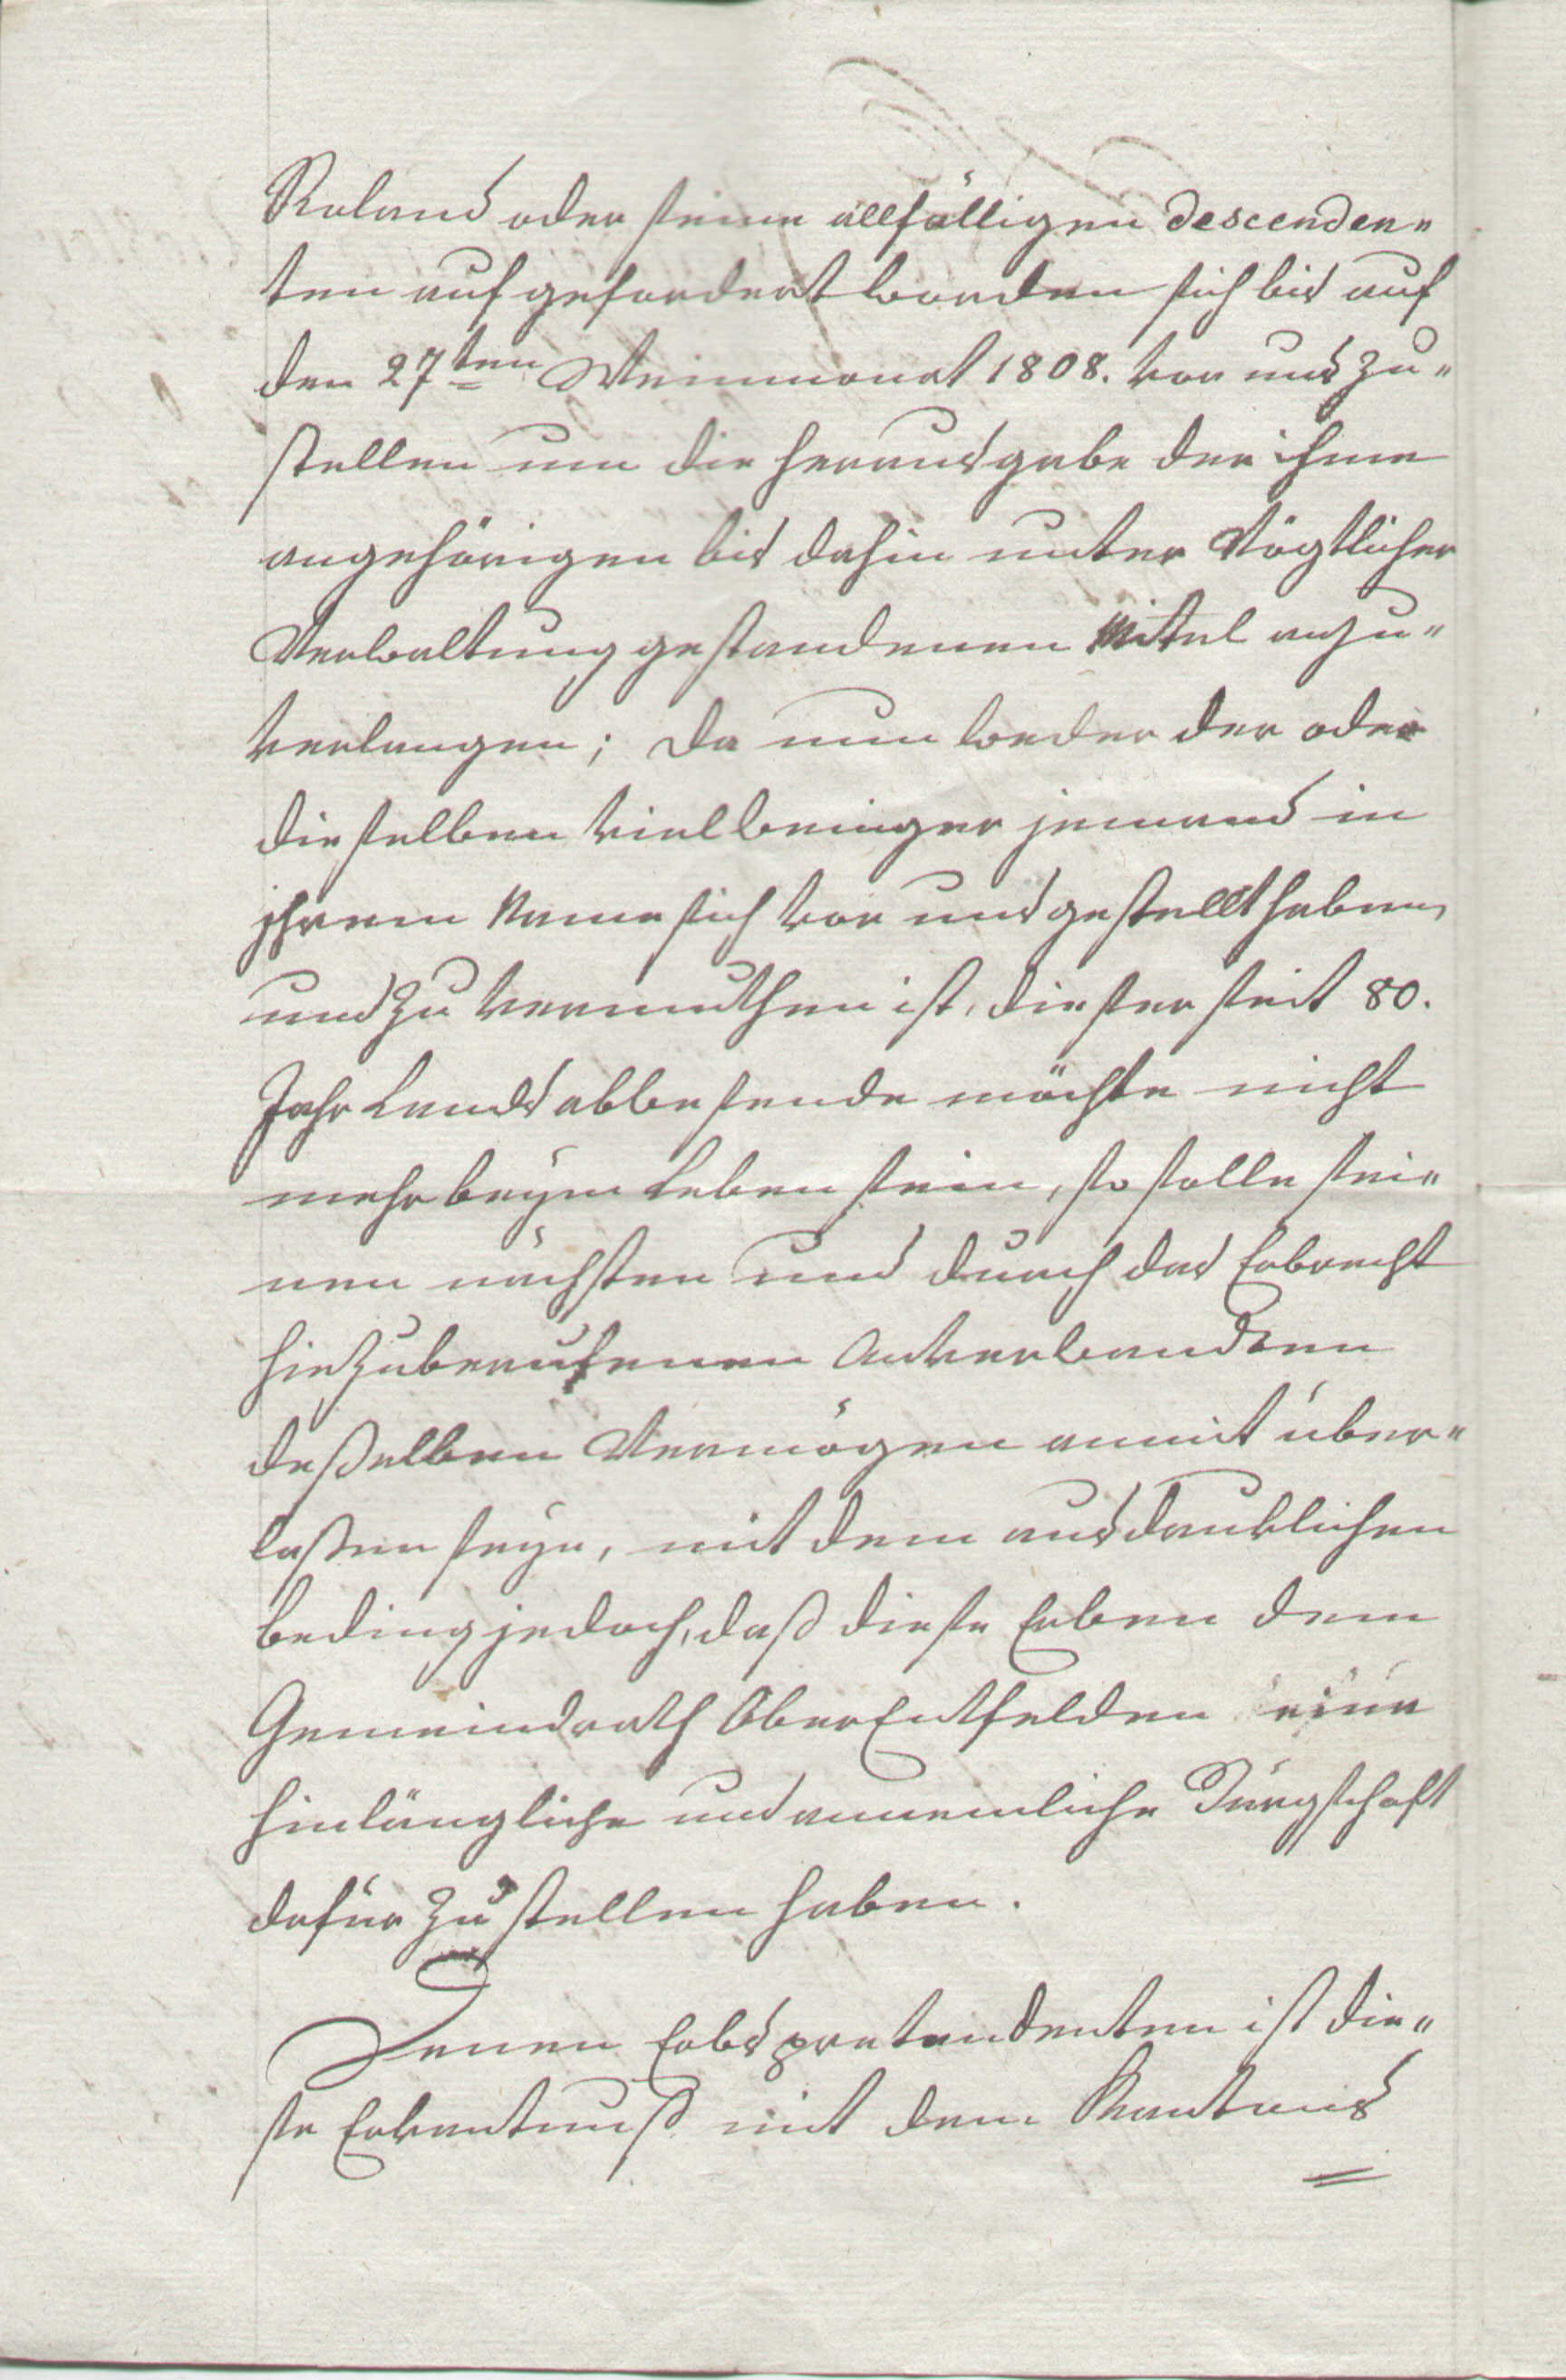 Roland oder seine allfälligen descenden"
ten aufgefordert worden sich bis auf
den 27ten Weinmonat 1808. vor uns zu"
stellen um die herausgabe der ihme
angehörigen bis dahin unter Vögtlicher
Verwaltung gestandenen Mittel anzu"
verlangen; Da nun weder der oder
dieselben vielweniger jemand in
jhrem Name sich vor uns gestellt haben,
und zu vermuthen ist, dieser seit 80.
Jahr Landsabwesende möchte nicht
mehr beÿm Leben sein, so solle sei"
nen nächsten und durch das Erbrecht
hiezuberufenen Anverwandten
deßelben Vermögen anmit über"
laßen seye, mit dem ausdruklichen
beding jedoch, daß diese Erben dem
Gemeindrath OberEntfelden eine
hinlängliche und annemliche Bürgschaft
dafür zu stellen haben.
Denen Erbspretendenten ist die"
se Erkantnuß mit dem Kantons